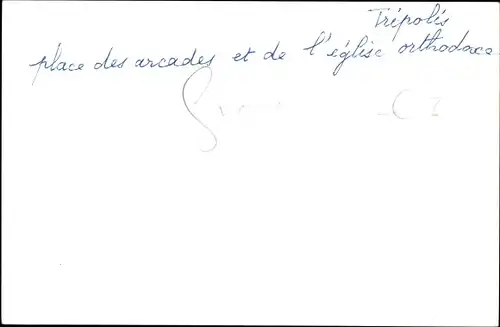 Trépolis
place des arcades et de l'église orthodoxe